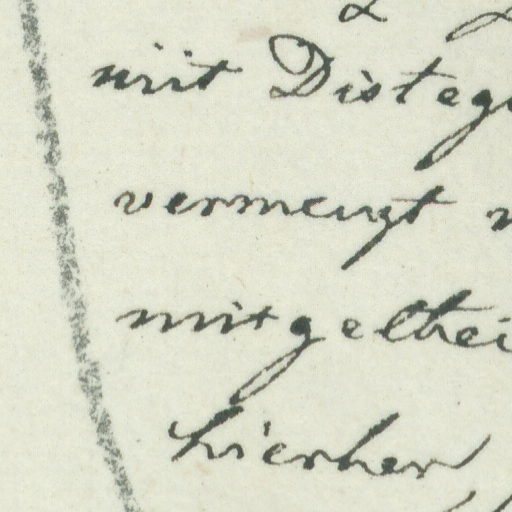 mit Disteg
vermengt
mitgethei
hierher,